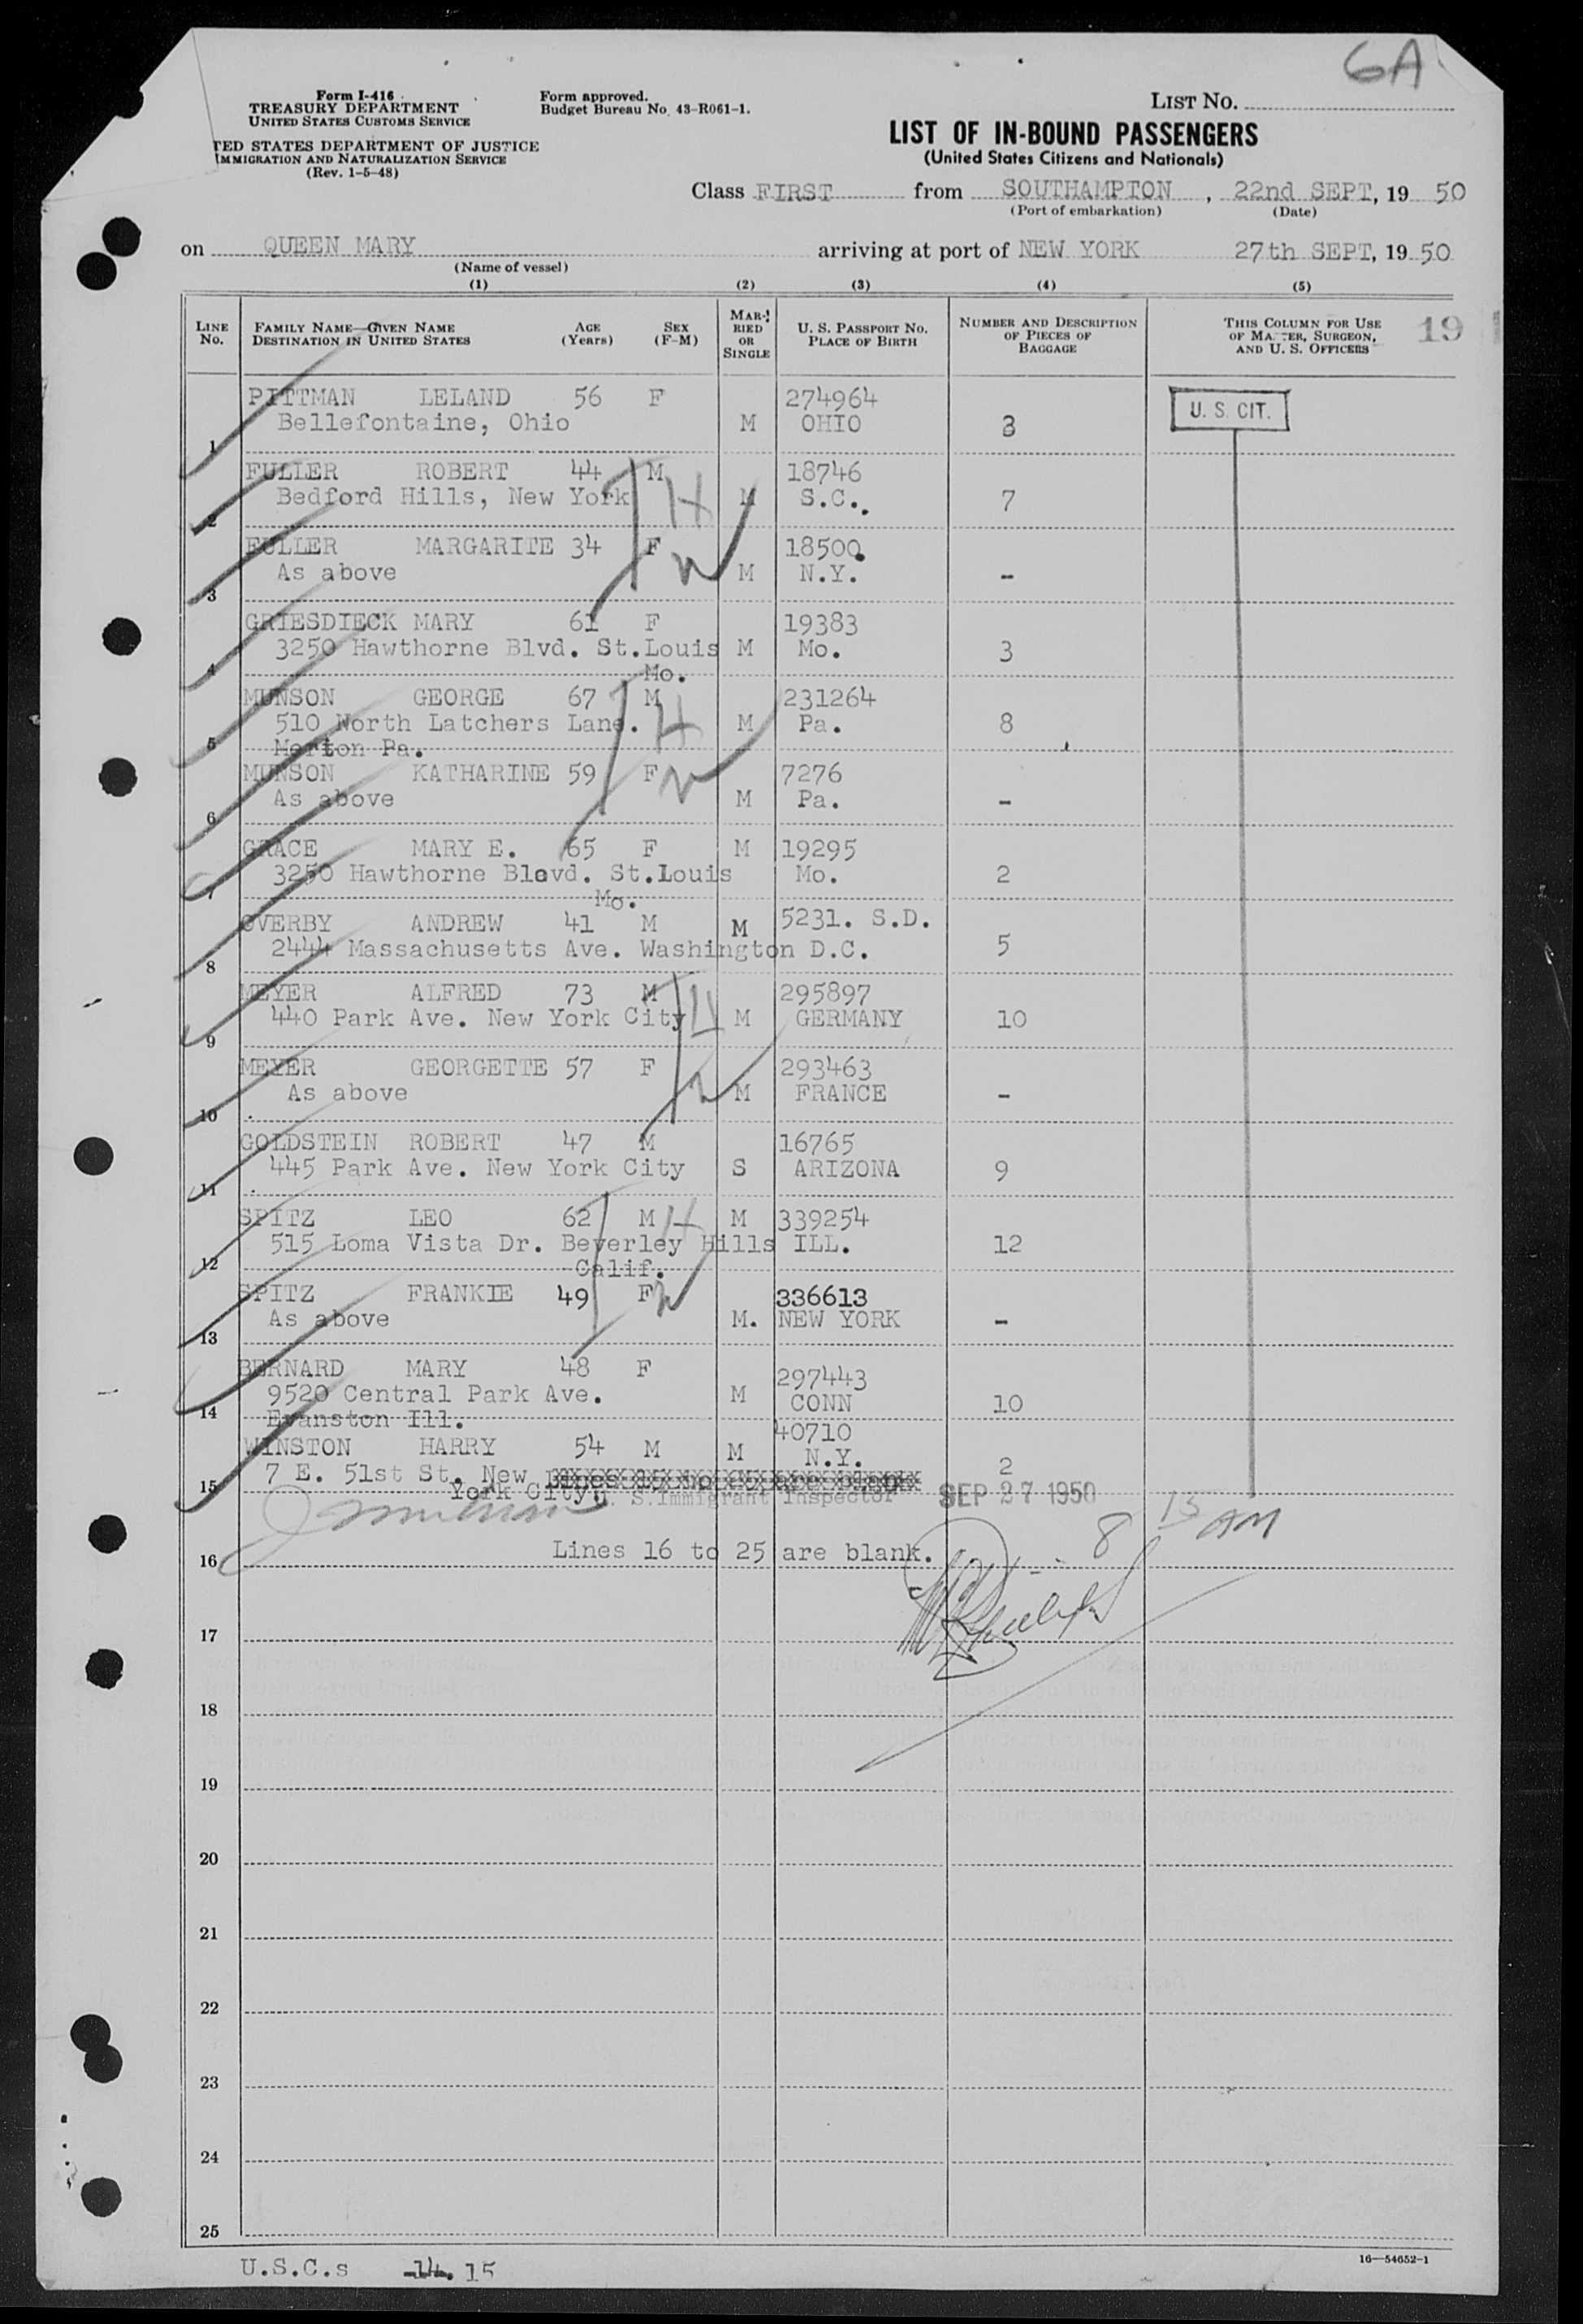 6A
Form I-416
TREASURY DEPARTMENT
UNITED STATES CUSTOMS SERVICE
TED STATES DEPARTMENT OF JUSTICE
IMMIGRATION AND NATURALIZATION SERVICE
(Rev. 1-5-48)
Form approved.
Budget Bureau No. 43-R061-1.
LIST NO.
LIST OF IN-BOUND PASSENGERS
(United States Citizens and Nationals)
Class FIRST from SOUTHAMPTON, 22nd SEPT, 19 50
(Port of embarkation) (Date)
on QUEEN MARY arriving at port of NEW YORK 27th SEPT, 19 50
(Name of vessel)
(1) (2) (3) (4) (5)
LINE No. FAMILY NAME—GIVEN NAME DESTINATION IN UNITED STATES AGE (Years) SEX (F-M) MARRIED OR SINGLE U. S. PASSPORT NO. PLACE OF BIRTH NUMBER AND DESCRIPTION OF PIECES OF BAGGAGE THIS COLUMN FOR USE OF MA TER, SURGEON, AND U. S. OFFICERS 19
PITTMAN LELAND 56 F 274964 U. S. CIT.
1 Bellefontaine, Ohio M OHIO 3
FULLER ROBERT 44 M 18746
H
2 Bedford Hills, New York M S.C. 7
FULLER MARGARITE 34 F 18500
W
3 As above M N.Y. -
GRIESDIECK MARY 61 F 19383
4 3250 Hawthorne Blvd. St.Louis M Mo. 3
Mo.
MUNSON GEORGE 67 M 231264
H
5 510 North Latchers Lane. M Pa. 8
Merton Pa.
MUNSON KATHARINE 59 F 7276
W
6 As above M Pa. -
GRACE MARY E. 65 F M 19295
7 3250 Hawthorne Blevd. St.Louis Mo. 2
Mo.
OVERBY ANDREW 41 M M 5231. S.D.
8 2444 Massachusetts Ave. Washington D.C. 5
MEYER ALFRED 73 M 295897
H
9 440 Park Ave. New York City M GERMANY 10
MEYER GEORGETTE 57 F 293463
W
10 As above M FRANCE -
GOLDSTEIN ROBERT 47 M 16765
11 445 Park Ave. New York City S ARIZONA 9
SPITZ LEO 62 M H M 339254
12 515 Loma Vista Dr. Beverley Hills ILL. 12
Calif.
SPITZ FRANKIE 49 F W 336613
13 As above M. NEW YORK -
BERNARD MARY 48 F 297443
14 9520 Central Park Ave. M CONN 10
Evanston Ill.
WINSTON HARRY 54 M M 40710
N.Y.
15 7 E. 51st St. New Lines 15 to 25 are blank 2
York City U. S. Immigrant Inspector SEP 27 1950
8 15 AM
16 Lines 16 to 25 are blank.
17
18
19
20
21
22
23
24
25
U.S.C.s 14. 15
16—54652-1